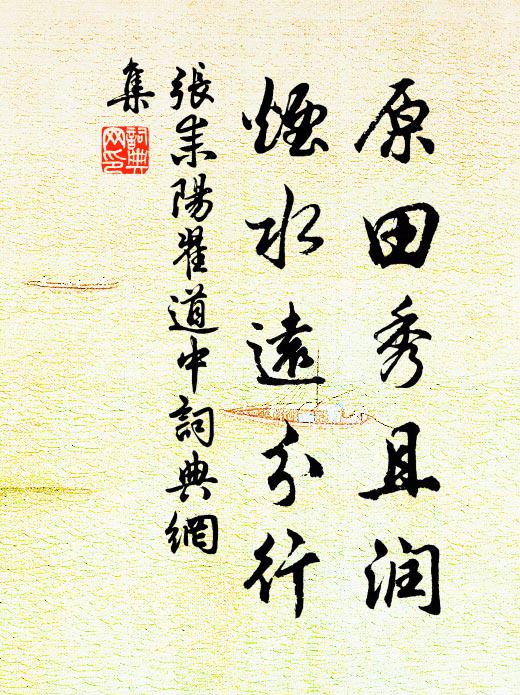 原田秀且润
煙水遠分行
張耒陽翟道中詞典網
集
詞典網印